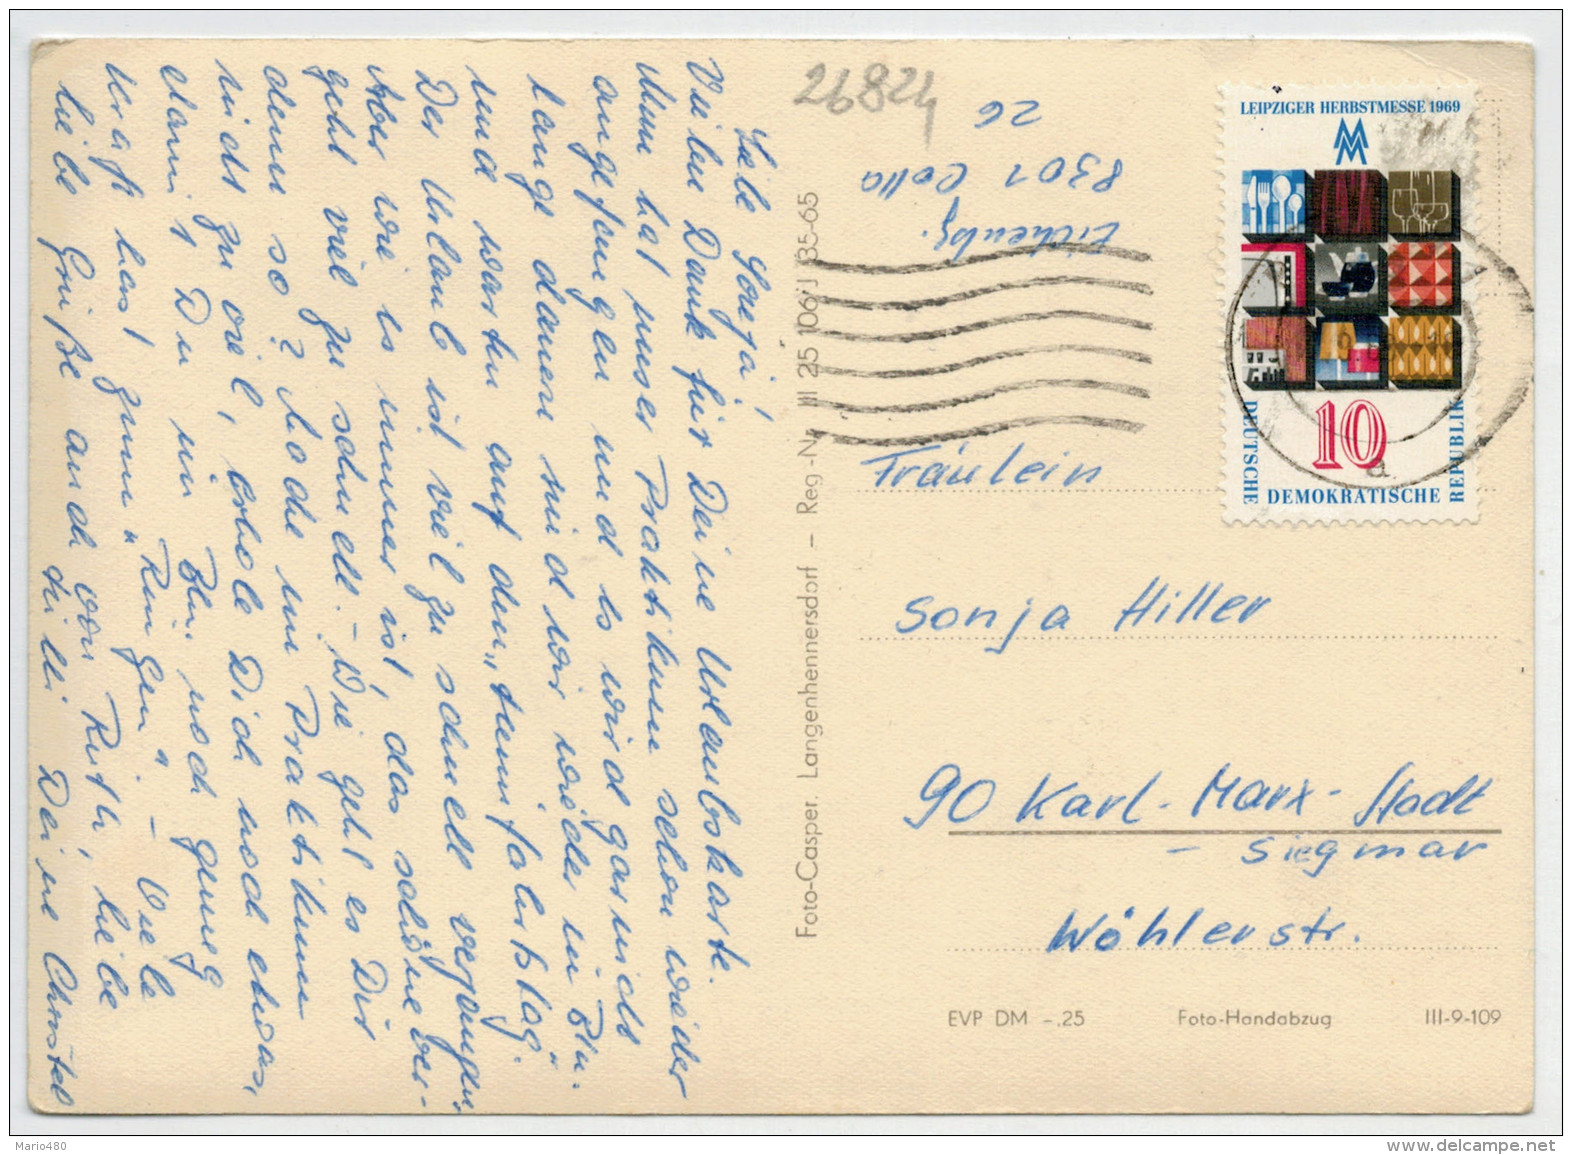 26824
26
8301 Cotta
Liebe Sonja!
Vielen Dank für Deine Urlaubskarte.
Nun hat unser Praktikum schon wieder
angefangen und es wird gar nicht
lange dauern sind wir wieder in Bln.
und warten auf den „
Der Urlaub ist viel zu schnell vergangen.
Aber wie es immer ist, das schöne ver-
geht viel zu schnell. – Wie geht es Dir
denn so? Mode im Praktikum
nicht zu viel, erhole Dich noch etwas,
damit Du in Bln. noch genug
Kraft hast zum „Rungen“. – Viele
liebe Grüße auch von Ruth, liebe
Deine Christel
Foto-Casper, Langenhennersdorf – Reg-Nr. III 25 106 J 35-65
LEIPZIGER HERBSTMESSE 1969
MM
10
DEUTSCHE DEMOKRATISCHE REPUBLIK
a
Fräulein
Sonja Hiller
90 Karl-Marx-Stadt
- Siegmar
Wöhlerstr.
EVP DM –,25 Foto-Handabzug III-9-109
Mario480
www.delcampe.net